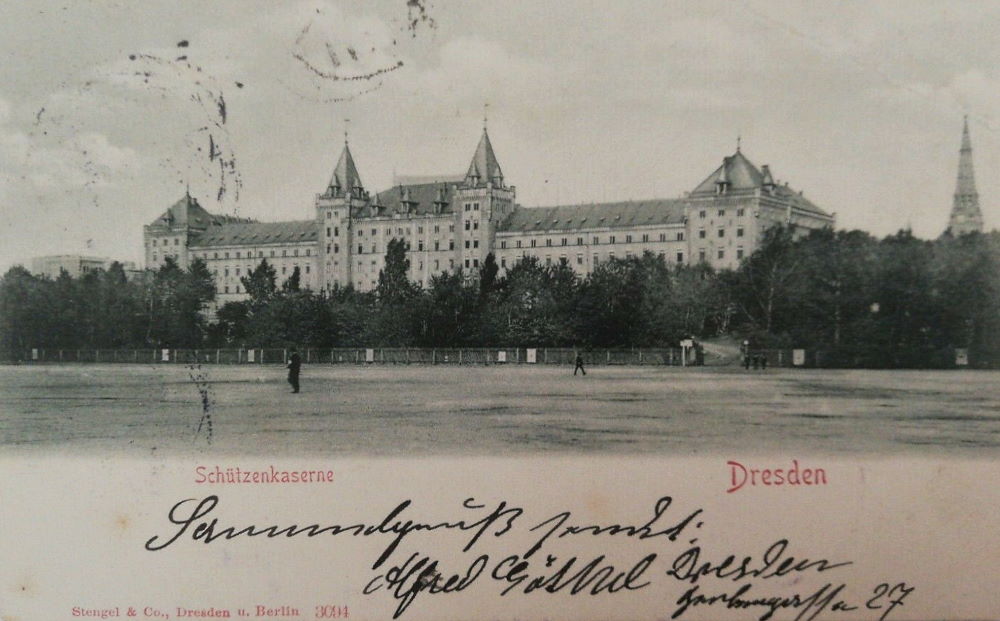 Schützenkaserne
Dresden
Sammelgruß sendet:
Alfred Göthel Dresden
27
Stengel & Co., Dresden u. Berlin 3094